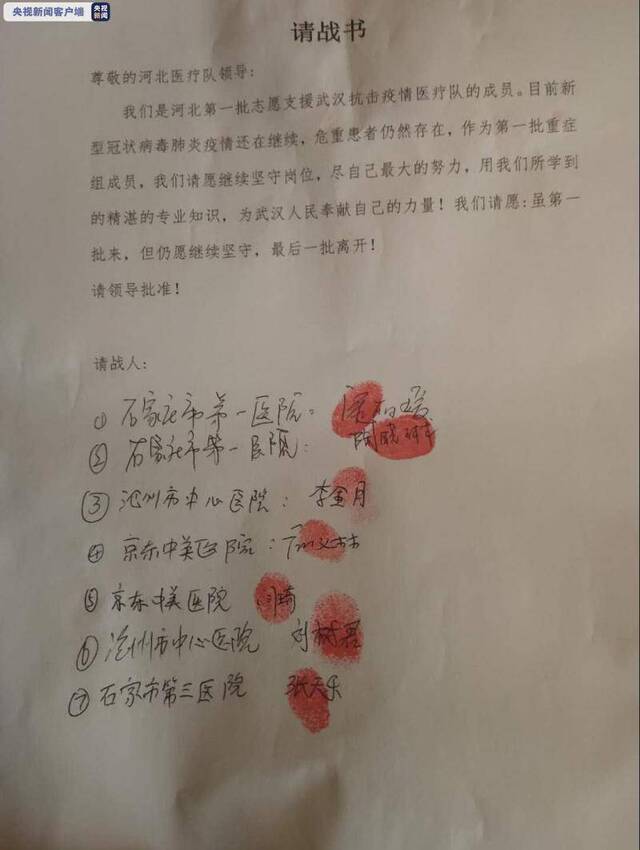 央视新闻客户端
央视
新闻
请战书
尊敬的河北医疗队领导:
我们是河北第一批志愿支援武汉抗击疫情医疗队的成员。目前新
型冠状病毒肺炎疫情还在继续，危重患者仍然存在，作为第一批重症
组成员，我们请愿继续坚守岗位，尽自己最大的努力，用我们所学到
的精湛的专业知识，为武汉人民奉献自己的力量！我们请愿:虽第一
批来，但仍愿继续坚守，最后一批离开！
请领导批准！
请战人:
① 石家庄市第一医院:
② 石家庄市第一医院: 陶晓
③ 沧州市中心医院: 李金月
④ 京东中美医院:
⑤ 京东中美医院 闫琦
⑥ 沧州市中心医院 刘树君
⑦ 石家市第三医院 张天乐